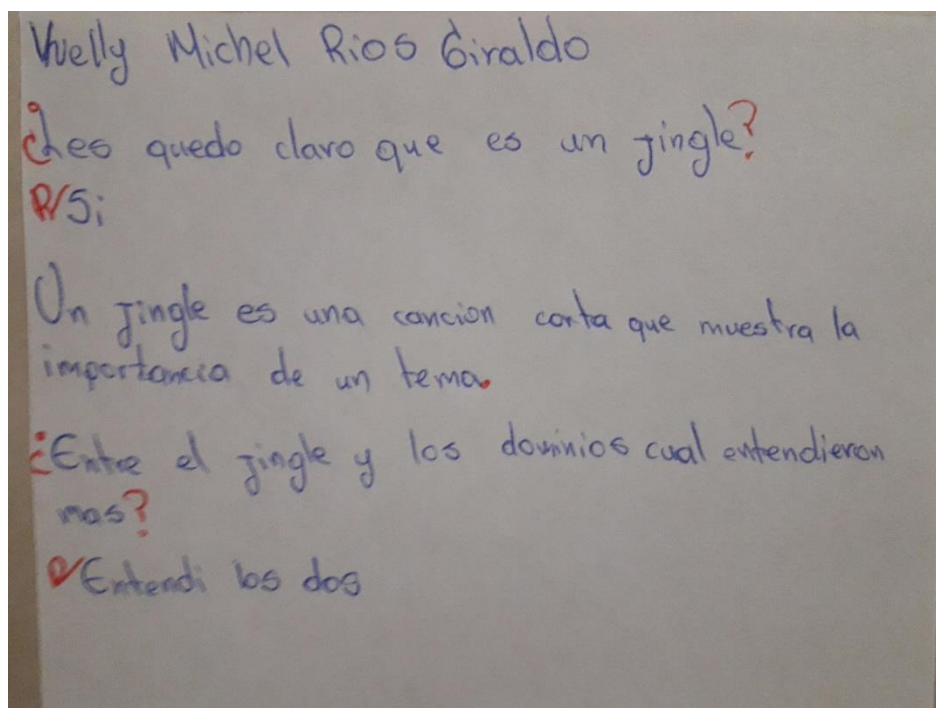 Michel Rios Giraldo
¿Les quedo claro que es un jingle?
R/Si
Un jingle es una cancion corta que muestra la
importancia de un tema.
¿Entre el jingle y los dominios cual entendieron
mas?
R/Entendi los dos